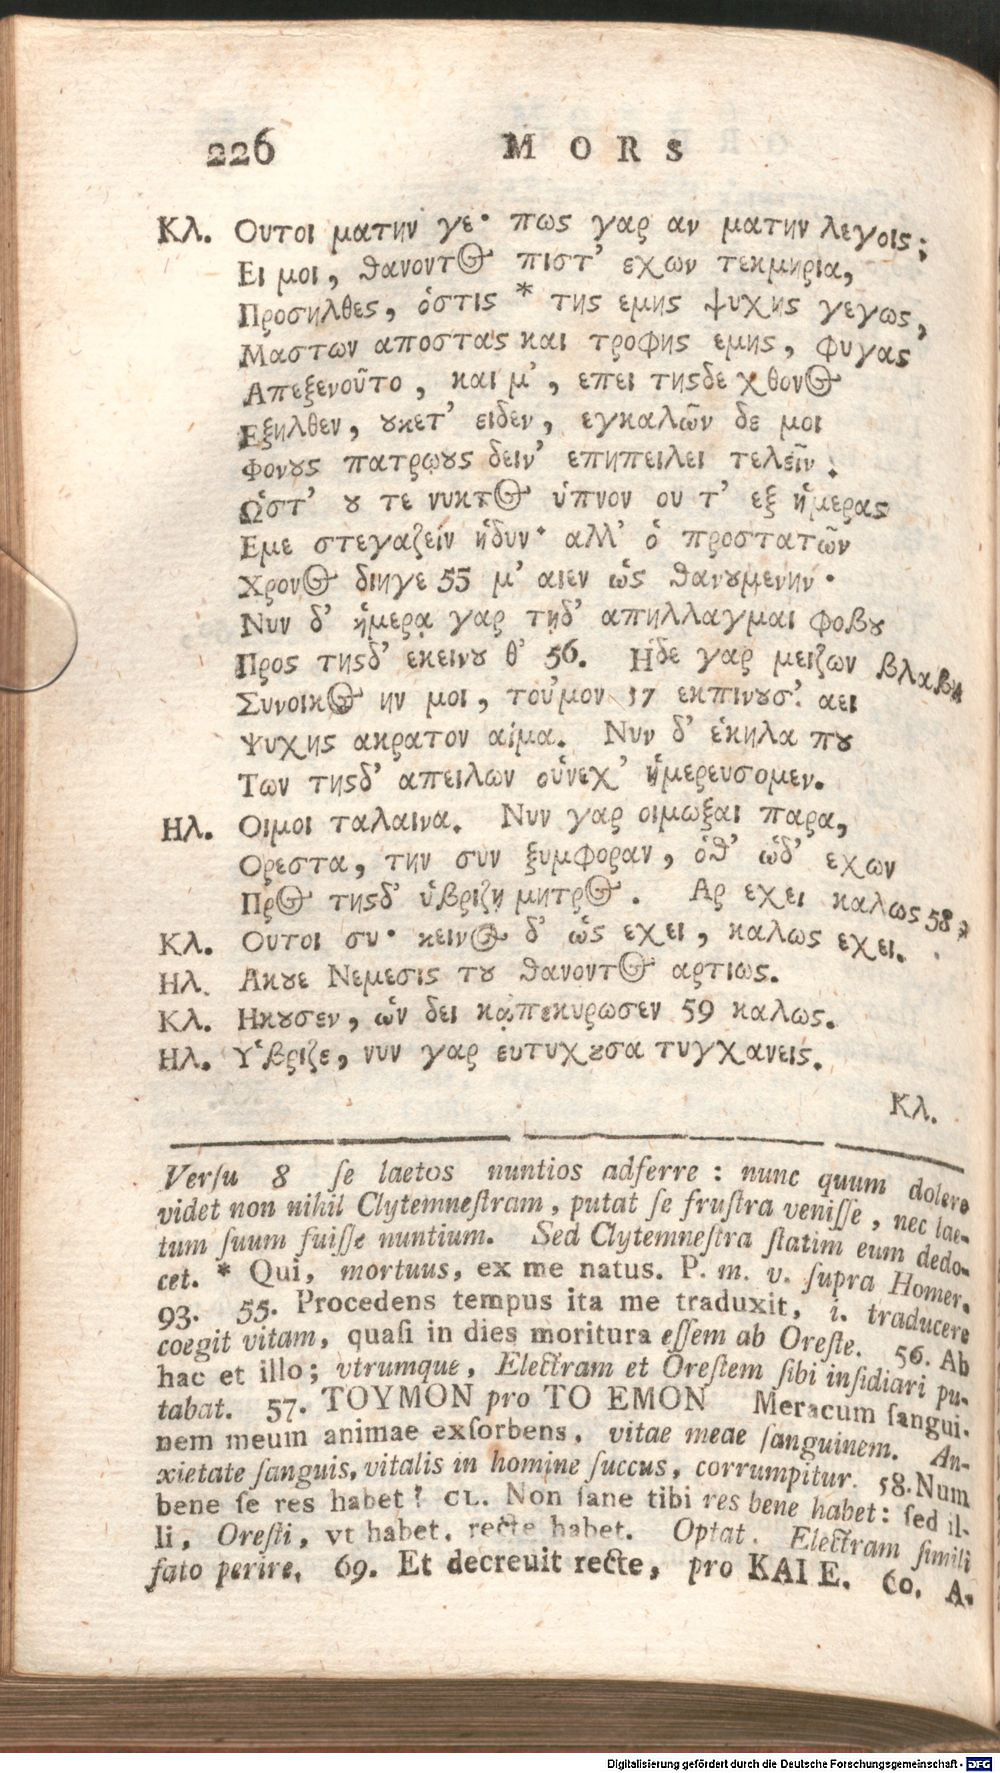 226 MORS
Κλ. Ουτοι ματην γε· πως γαρ αν ματην λεγοις;
Ει μοι, θανοντος πιστ’ εχων τεκμηρια,
Προσηλθες, ὁστις * της εμης ψυχης γεγως,
Μαστων αποστας και τροφης εμης, φυγας
Απεξενοῦτο, και μ’, επει τηςδε χθονος
Εξηλθεν, ȣκετ’ ειδεν, εγκαλῶν δε μοι
Φονȣς πατρῳȣς δειν’ επηπειλει τελεῖν.
Ὡστ’ ȣ τε νυκτος ὑπνον ου τ’ εξ ἡμερας
Εμε στεγαζειν ἡδυν· αλλ’ ὁ προστατῶν
Χρονος διηγε 55 μ’ αιεν ὡς θανȣμενην·
Νυν δ’ ἡμερᾳ γαρ τῃδ’ απηλλαγμαι φοβȣ
Προς τηςδ’ εκεινȣ θ’ 56. Ἡδε γαρ μειζων βλαβη
Συνοικος ην μοι, τοὐμον 57 εκπινȣσ’ αει
Ψυχης ακρατον αἱμα. Νυν δ’ ἑκηλα πȣ
Των τηςδ’ απειλων οὑνεχ’ ἡμερευσομεν.
Ηλ. Οιμοι ταλαινα. Νυν γαρ οιμωξαι παρα,
Ορεστα, την συν ξυμφοραν, ὁθ’ ὡδ’ εχων
Προς τηςδ’ ὑβριζῃ μητρος. Αρ εχει καλως 58;
Κλ. Ουτοι συ· κεινος δ’ ὡς εχει, καλως εχει.
Ηλ. Ακȣε Νεμεσις τȣ θανοντος αρτιως.
Κλ. Ηκȣσεν, ὡν δει κᾀπεκυρωσεν 59 καλως.
Ηλ. Ὑβριζε, νυν γαρ ευτυχȣσα τυγχανεις.
Κλ.
Verſu 8 ſe laetos nuntios adferre: nunc quum dolere
videt non nihil Clytemneſtram, putat ſe fruſtra veniſſe, nec lae-
tum ſuum fuiſſe nuntium. Sed Clytemneſtra ſtatim eum dedo-
cet. * Qui, mortuus, ex me natus. P. m. v. ſupra Homer.
93. 55. Procedens tempus ita me traduxit, i. traducere
coegit vitam, quaſi in dies moritura eſſem ab Oreſte. 56. Ab
hac et illo; vtrumque, Electram et Oreſtem ſibi inſidiari pu-
tabat. 57. ΤΟΥΜΟΝ pro ΤΟ ΕΜΟΝ Meracum ſangui-
nem meum animae exſorbens, vitae meae ſanguinem. An-
xietate ſanguis, vitalis in homine ſuccus, corrumpitur. 58. Num
bene ſe res habet? CL. Non ſane tibi res bene habet: ſed il-
li, Oreſti, vt habet, recte habet. Optat. Electram ſimili
fato perire. 69. Et decreuit recte, pro ΚΑΙ Ε. 60. A.
Digitalisierung gefördert durch die Deutsche Forschungsgemeinschaft - DFG